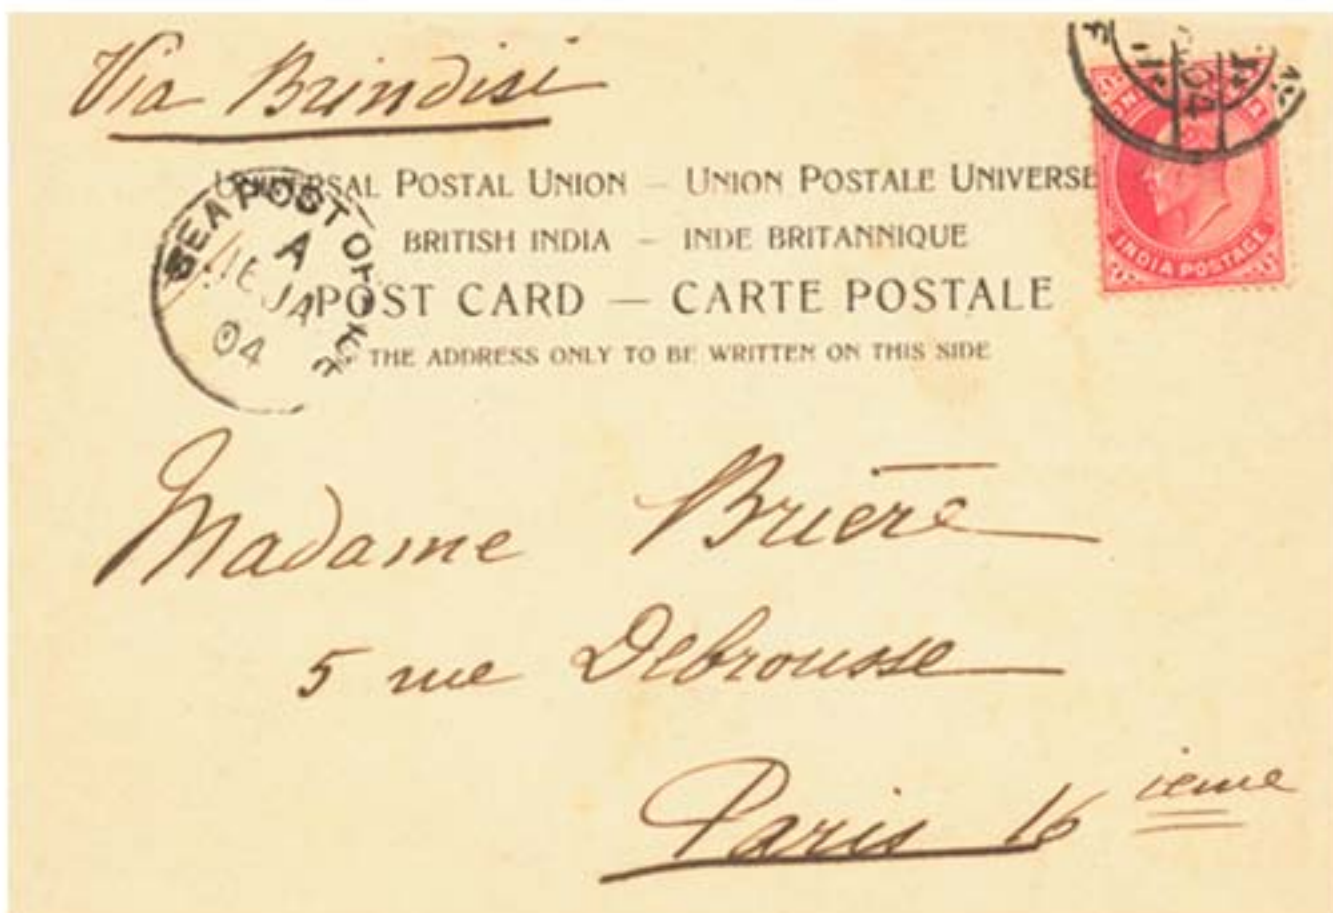 Via Brindisi
UNIVERSAL POSTAL UNION — UNION POSTALE UNIVERSE
BRITISH INDIA — INDE BRITANNIQUE
POST CARD — CARTE POSTALE
THE ADDRESS ONLY TO BE WRITTEN ON THIS SIDE
SEA POST OFFICE
A
JA
04
INDIA POSTAGE
Madame Brière
5 rue Debrousse
Paris 16 ieme